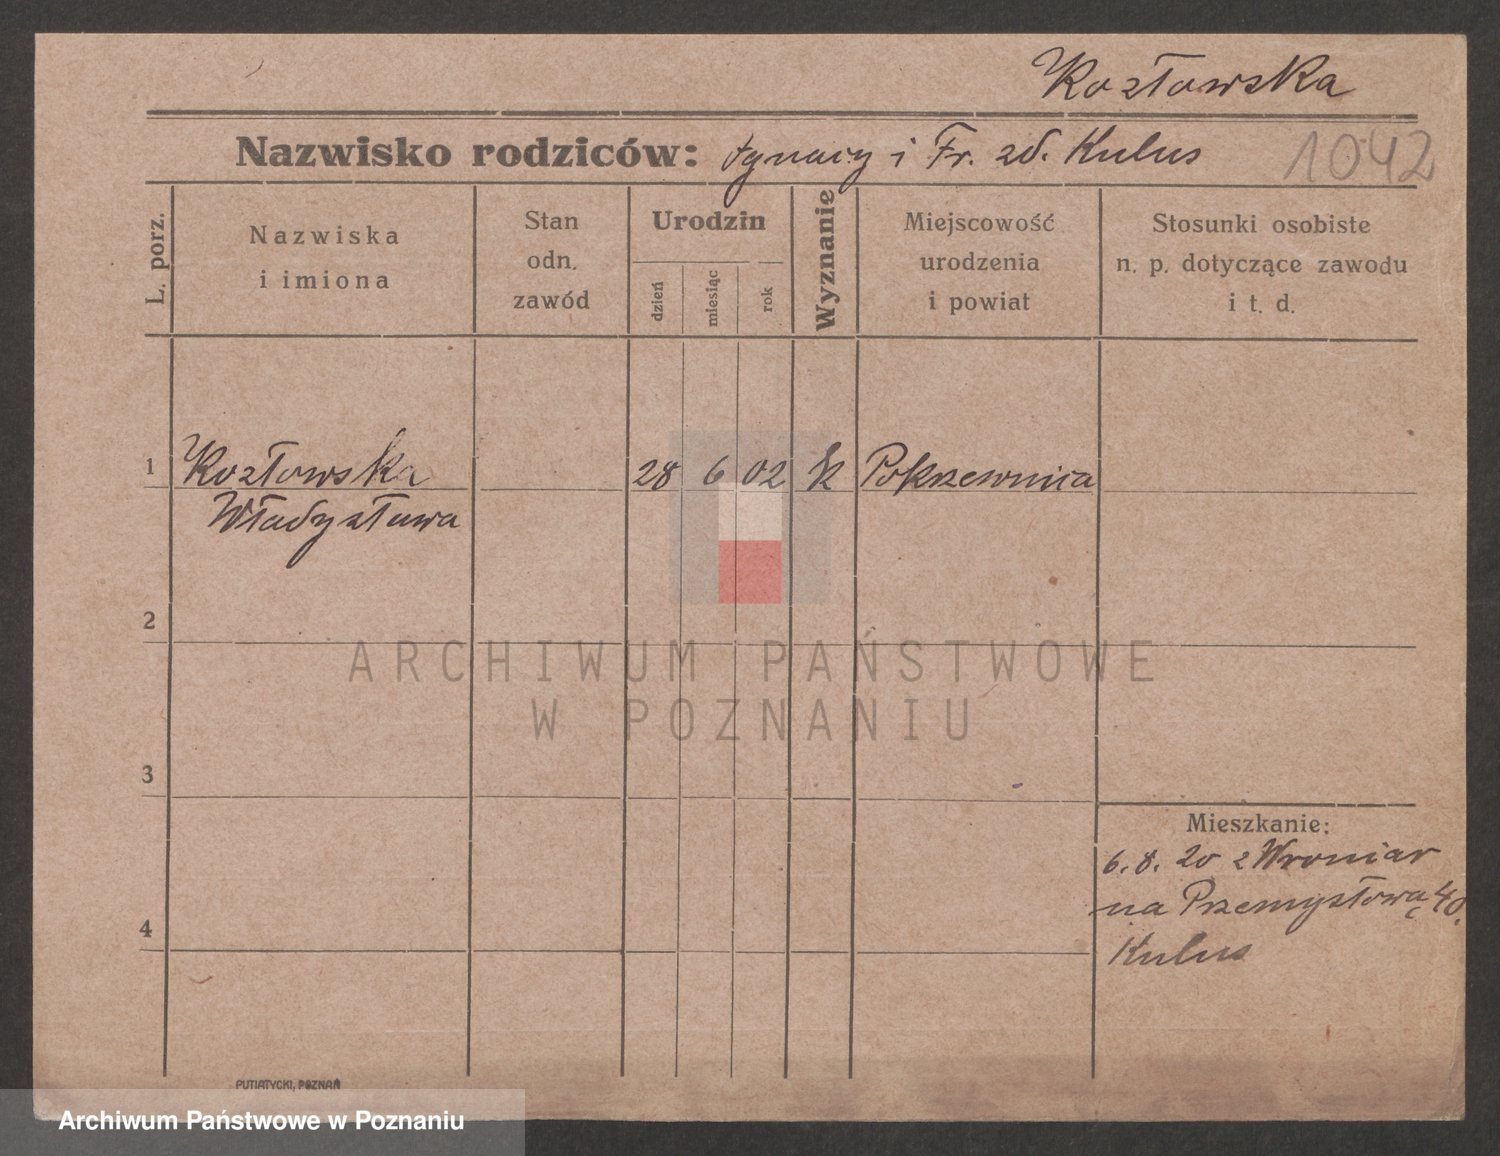 Kozłowska
Nazwisko rodziców: Ignacy i Fr. zd. Kulus
1042
L. porz.
Nazwiska
i imiona
Stan
odn.
zawód
Urodzin
dzień
miesiąc
rok
Wyznanie
Miejscowość
urodzenia
i powiat
Stosunki osobiste
n. p. dotyczące zawodu
i t. d.
1 Kozłowska 28 6 02 k Pokrzewnica
Władysława
2
3
4
Mieszkanie:
6.8.20 z Wroniar
na Przemysłową 40.
Kulus
PUTIATYCKI, POZNAŃ
ARCHIWUM PAŃSTWOWE
W POZNANIU
Archiwum Państwowe w Poznaniu